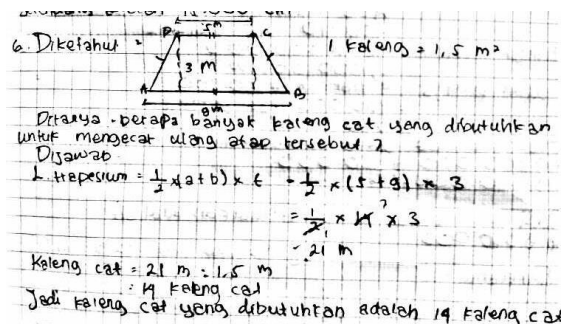 6. Diketahui :
D 5 m C
1 Kaleng = 1,5 m²
3 m
A B
9 m
Ditanya . berapa banyak kaleng cat yang dibutuhkan
untuk mengecat ulang atap tersebut ?
Dijawab
L. trapesium = 1/2 x (a+b) x t = 1/2 x (5 + 9) x 3
= 1/2 x 14 7 x 3
1
= 21 m
Kaleng cat = 21 m : 1,5 m
= 14 kaleng cat
Jadi kaleng cat yang dibutuhkan adalah 14 kaleng cat